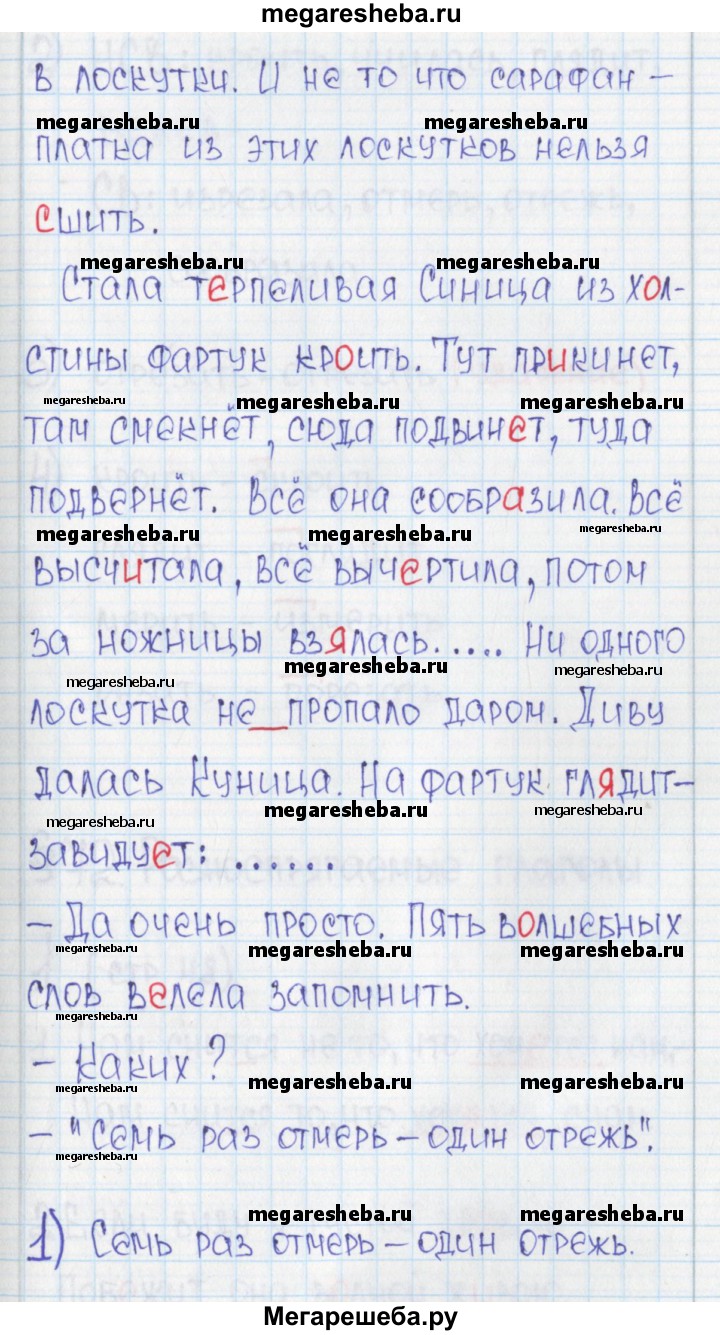 megaresheba.ru
в лоскутки. И не то что сарафан –
megaresheba.ru megaresheba.ru
платка из этих лоскутков нельзя
сшить.
megaresheba.ru megaresheba.ru
Стала терпеливая Синица из хол-
стины фартук кроить. Тут прикинет,
megaresheba.ru megaresheba.ru megaresheba.ru
там смекнёт, сюда подвинет, туда
подвернёт. Всё она сообразила. Всё
megaresheba.ru megaresheba.ru megaresheba.ru
высчитала, всё вычертила, потом
за ножницы взялась..... Ни одного
megaresheba.ru megaresheba.ru megaresheba.ru
лоскутка не пропало даром. Диву
далась Куница. На фартук глядит–
megaresheba.ru megaresheba.ru megaresheba.ru
завидует: .......
– Да очень просто. Пять волшебных
megaresheba.ru megaresheba.ru megaresheba.ru
слов велела запомнить.
megaresheba.ru
– Каких?
megaresheba.ru megaresheba.ru megaresheba.ru
– "Семь раз отмерь – один отрежь".
megaresheba.ru
megaresheba.ru megaresheba.ru
1) Семь раз отмерь – один отрежь.
Мегарешеба.ру